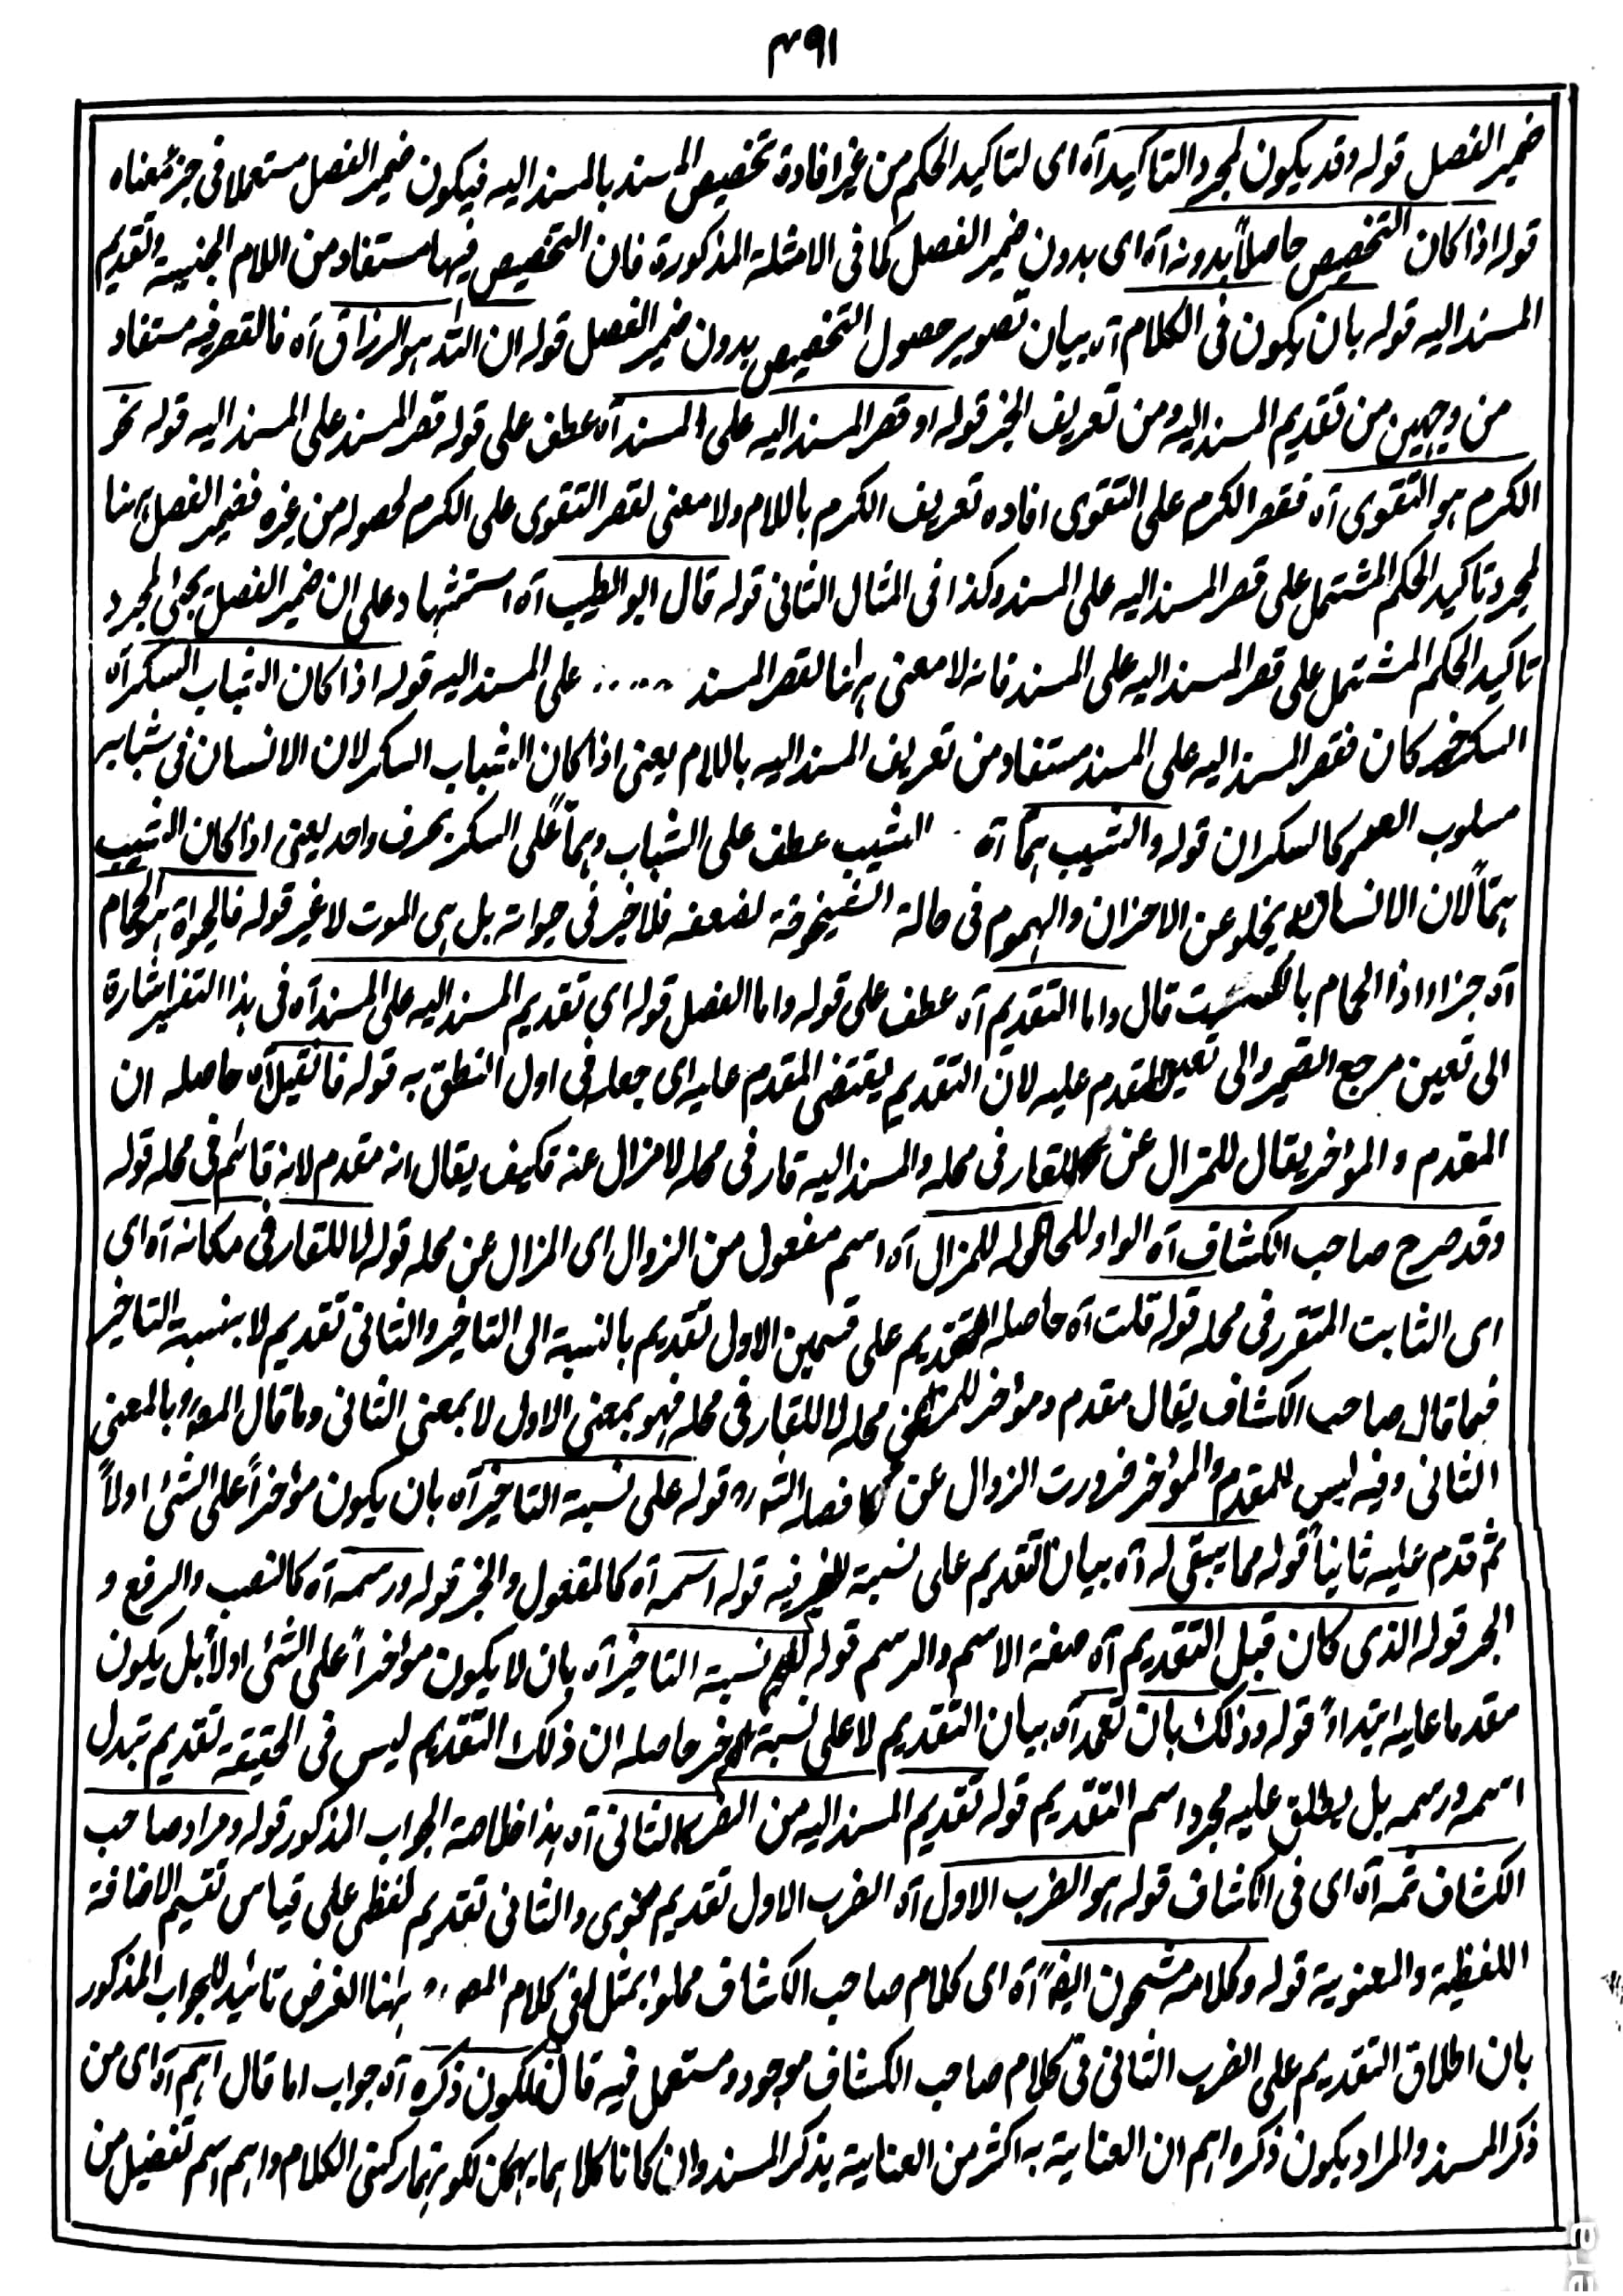 ٣٩١
ضمير الفصل قوله وقد يكون لمجرد التاكيد آه اى لتاكيد الحكم من غير افادة تخصيص المسند بالمسند اليه فيكون ضمير الفصل مستعملا فى جزء معناه
قوله اذا كان التخصيص حاصلاً بدونه آه اى بدون ضمير الفصل كما فى الامثلة المذكورة فان التخصيص فيها مستفاد من اللام الجنسية وتقديم
المسند اليه قوله بان يكون فى الكلام آه بيان تصوير حصول التخصيص بدون ضمير الفصل قوله ان الله هو الرزاق آه فالقصر فيه مستفاد
من وجهين من تقديم المسند اليه ومن تعريف الخبر قوله او قصر المسند اليه على المسند آه عطف على قوله قصر المسند على المسند اليه قوله نحو
الكرم هو التقوى آه فقصر الكرم على التقوى افاده تعريف الكرم باللام ولا معنى لقصر التقوى على الكرم لحصوله من غيره فضمير الفصل ههنا
لمجرد تاكيد الحكم المشتمل على قصر المسند اليه على المسند وكذا فى المثال الثانى قوله قال ابو الطيب آه استشهاد على ان ضمير الفصل يجئ لمجرد
تاكيد الحكم المشتمل على قصر المسند اليه على المسند فانه لا معنى ههنا لقصر المسند ..... على المسند اليه قوله اذا كان الشباب السكر آه
السكر خبر كان فقصر المسند اليه على المسند مستفاد من تعريف المسند اليه باللام يعنى اذا كان الشباب السكر لان الانسان فى شبابه
مسلوب العمر كالسكران قوله والشيب هماً آه الشيب عطف على الشباب وهماً على السكر بحرف واحد يعنى اذا كان الشيب
هماً لان الانسان لا يخلو عن الاحزان والهموم فى حالة الشيخوخة لضعفه فلا خير فى حيواته بل هى الموت لا غير قوله فالحيوة هو الحمام
آه جزاء اذا الحمام بالكسر قال واما التقديم آه عطف على قوله واما الفصل قوله اى تقديم المسند اليه على المسند آه فى هذا التفسير اشارة
الى تعين مرجع الضمير والى تعين المقدم عليه لان التقديم يقتضى المقدم عليه اى جعله فى اول النطق به قوله فان قيل آه حاصله ان
المقدم والمؤخر يقال للمزال عن لا للقار فى محله والمسند اليه قار فى محله لا مزال عنه فكيف يقال انه مقدم لانه قائم فى محله قوله
وقد صرح صاحب الكشاف آه الواو للحال قوله للمزال آه اسم مفعول من الزوال اى المزال عن محله قوله لا للقار فى مكانه آه اى
اى الثابت المتقرر فى محله قوله قلت آه حاصله التقديم على قسمين الاول تقديم بالنسبة الى التاخير والثانى تقديم لا بنسبة التاخير
فما قال صاحب الكشاف يقال مقدم ومؤخر للمزال عن محله لا للقار فى محله فهو بمعنى الاول لا بمعنى الثانى وما قال المصـ بالمعنى
الثانى وفيه ليس للمقدم والمؤخر ضرورت الزوال عن كما فصله الشـ قوله على نسبة التاخير آه بان يكون مؤخراً على الشئ اولاً
ثم قدم عليه ثانياً قوله مما يبقى له آه بيان تقديم على نسبة قوله اسمه آه كالمفعول والخبر قوله ورسمه آه كالنصب والرفع و
الجر قوله الذى كان قبل التقديم آه صفة الاسم والرسم قوله نسبة التاخير آه بان لا يكون مؤخراً على الشئ اولاً بل يكون
مقدما عليه ابتداءً قوله وذلك بان تعمد آه بيان التقديم لا على نسبة حاصله ان ذلك التقديم ليس فى الحقيقة تقديم تبدل
اسمه ورسمه بل يطلق عليه مجرد اسم التقديم قوله تقديم المسند اليه من الضرب الثانى آه هذا خلاصة الجواب المذكور قوله ومراد صاحب
الكشاف ثمه آه اى فى الكشاف قوله هو الضرب الاول آه الضرب الاول تقديم معنوى والثانى تقديم لفظى على قياس تقسيم الاضافة
اللفظية والمعنوية قوله وكلامه مشحون ايضاً آه اى كلام صاحب الكشاف مملوا بمثل فى كلام المصـ ههنا الغرض تائيد للجواب المذكور
بان اطلاق التقديم على الضرب الثانى فى كلام صاحب الكشاف موجود ومستعمل فيه قال فلكون ذكره آه جواب اما قال اهم آه اى من
ذكر المسند والمراد يكون ذكره اهم ان العناية به اكثر من العناية بذكر المسند وان كانا كلاهما لكونهما ركنى الكلام واهم اسم تفضيل من